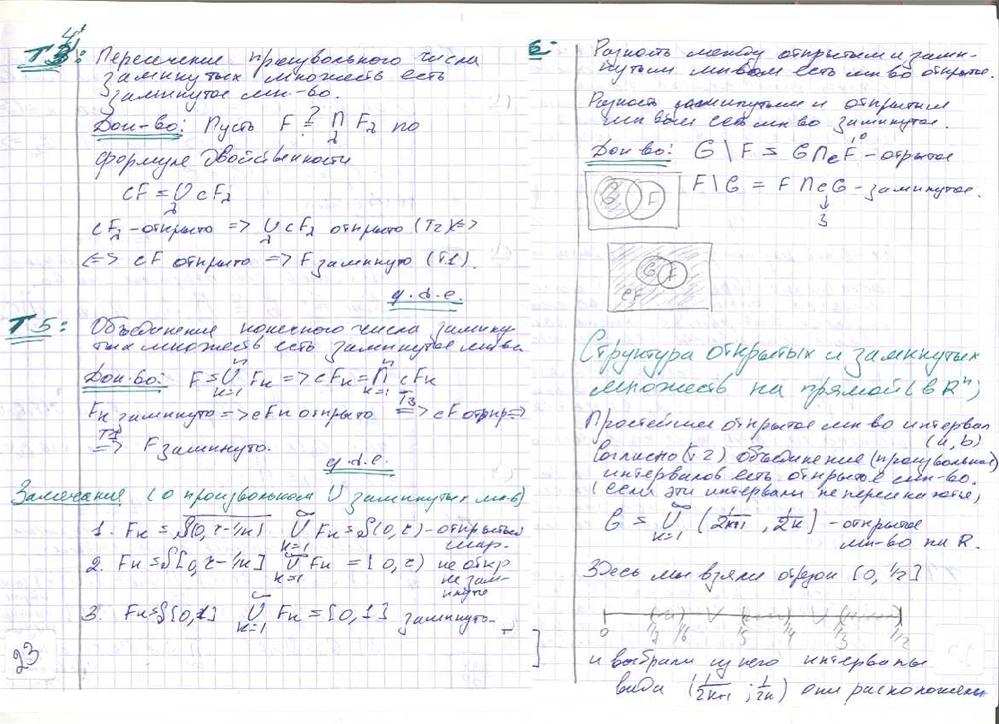 Т4: Пересечение произвольного числа
замкнутых множеств есть
замкнутое мн-во.
Док-во: Пусть F ≟ ∩₂ F₂ по
формуле двойственности
cF = ∪₂ cF₂
cF₂ - открыто => ∪₂ cF₂ открыто (Т2) <=>
<=> cF открыто => F замкнуто (Т1).
q.d.e.
Т5: Объединение конечного числа замкну-
тых множеств есть замкнутое мн-во
Док-во: F = ∪ₖ₌₁ⁿ Fₖ => cFₖ = ∩ₖ₌₁ⁿ cFₖ
Fₖ замкнуто => cFₖ открыто =Т3=> cF откр =>
=Т1=> F замкнуто.
q.d.e.
Замечание (о произвольном ∪ замкнутых мн-в)
1. Fₖ = S(0, r-1/k) ∪ₖ₌₁ Fₖ = S(0, r) - открытый
шар.
2. Fₖ = S[0, r-1/k] ∪ₖ₌₁ Fₖ = [0, r) не откр
не зам-
кнуто
3. Fₖ = S[0,1] ∪ₖ₌₁ Fₖ = [0,1] замкнуто
23
6: Разность между открытым и замк-
нутым мн-вом есть мн-во открытое.
Разность замкнутым и открытым
мн-вом есть мн-во замкнутое.
Док-во: G \ F = G ∩ cF - открытое
F \ G = F ∩ cG - замкнутое.
З
G F
G F
cF
Структура открытых и замкнутых
множеств на прямой (в Rⁿ)
Простейшее открытое мн-во интервал
(a, b)
Согласно (т2) объединение (произвольное)
интервалов есть открытое мн-во.
(если эти интервалы не пересекаются)
G = ∪ₖ₌₁ (1/2k+1, 1/2k) - открытое
мн-во на R.
Здесь мы взяли отрезок [0, 1/2]
0 1/7 1/6 1/5 1/4 1/3 1/2
и выбрали из него интервалы
вида (1/2k+1 ; 1/2k) они расположены